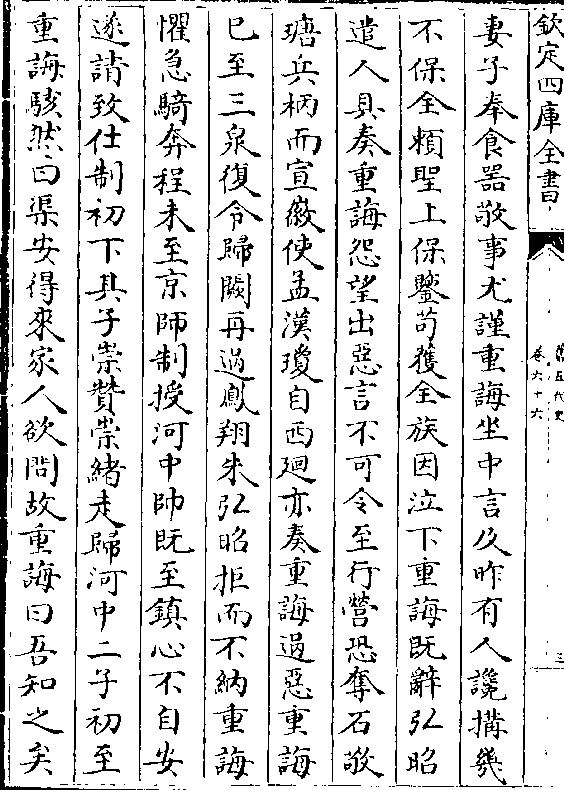 欽定四庫全書
舊五代史
卷六十六
三
妻子奉食器敬事尤謹重誨坐中言及昨有人讒搆㡬
不保全賴聖上保鑒茍獲全族因泣下重誨既辭弘昭
遣人具奏重誨怨望出惡言不可令至行營恐奪石敬
瑭兵柄而宣徽使孟漢瓊自西廻亦奏重誨過惡重誨
已至三泉復令歸闕再過鳳翔朱弘昭拒而不納重誨
懼急騎奔程未至京師制授河中帥既至鎮心不自安
遂請致仕制初下其子崇賛崇緒走歸河中二子初至
重誨駭然曰渠安得來家人欲問故重誨曰吾知之矣